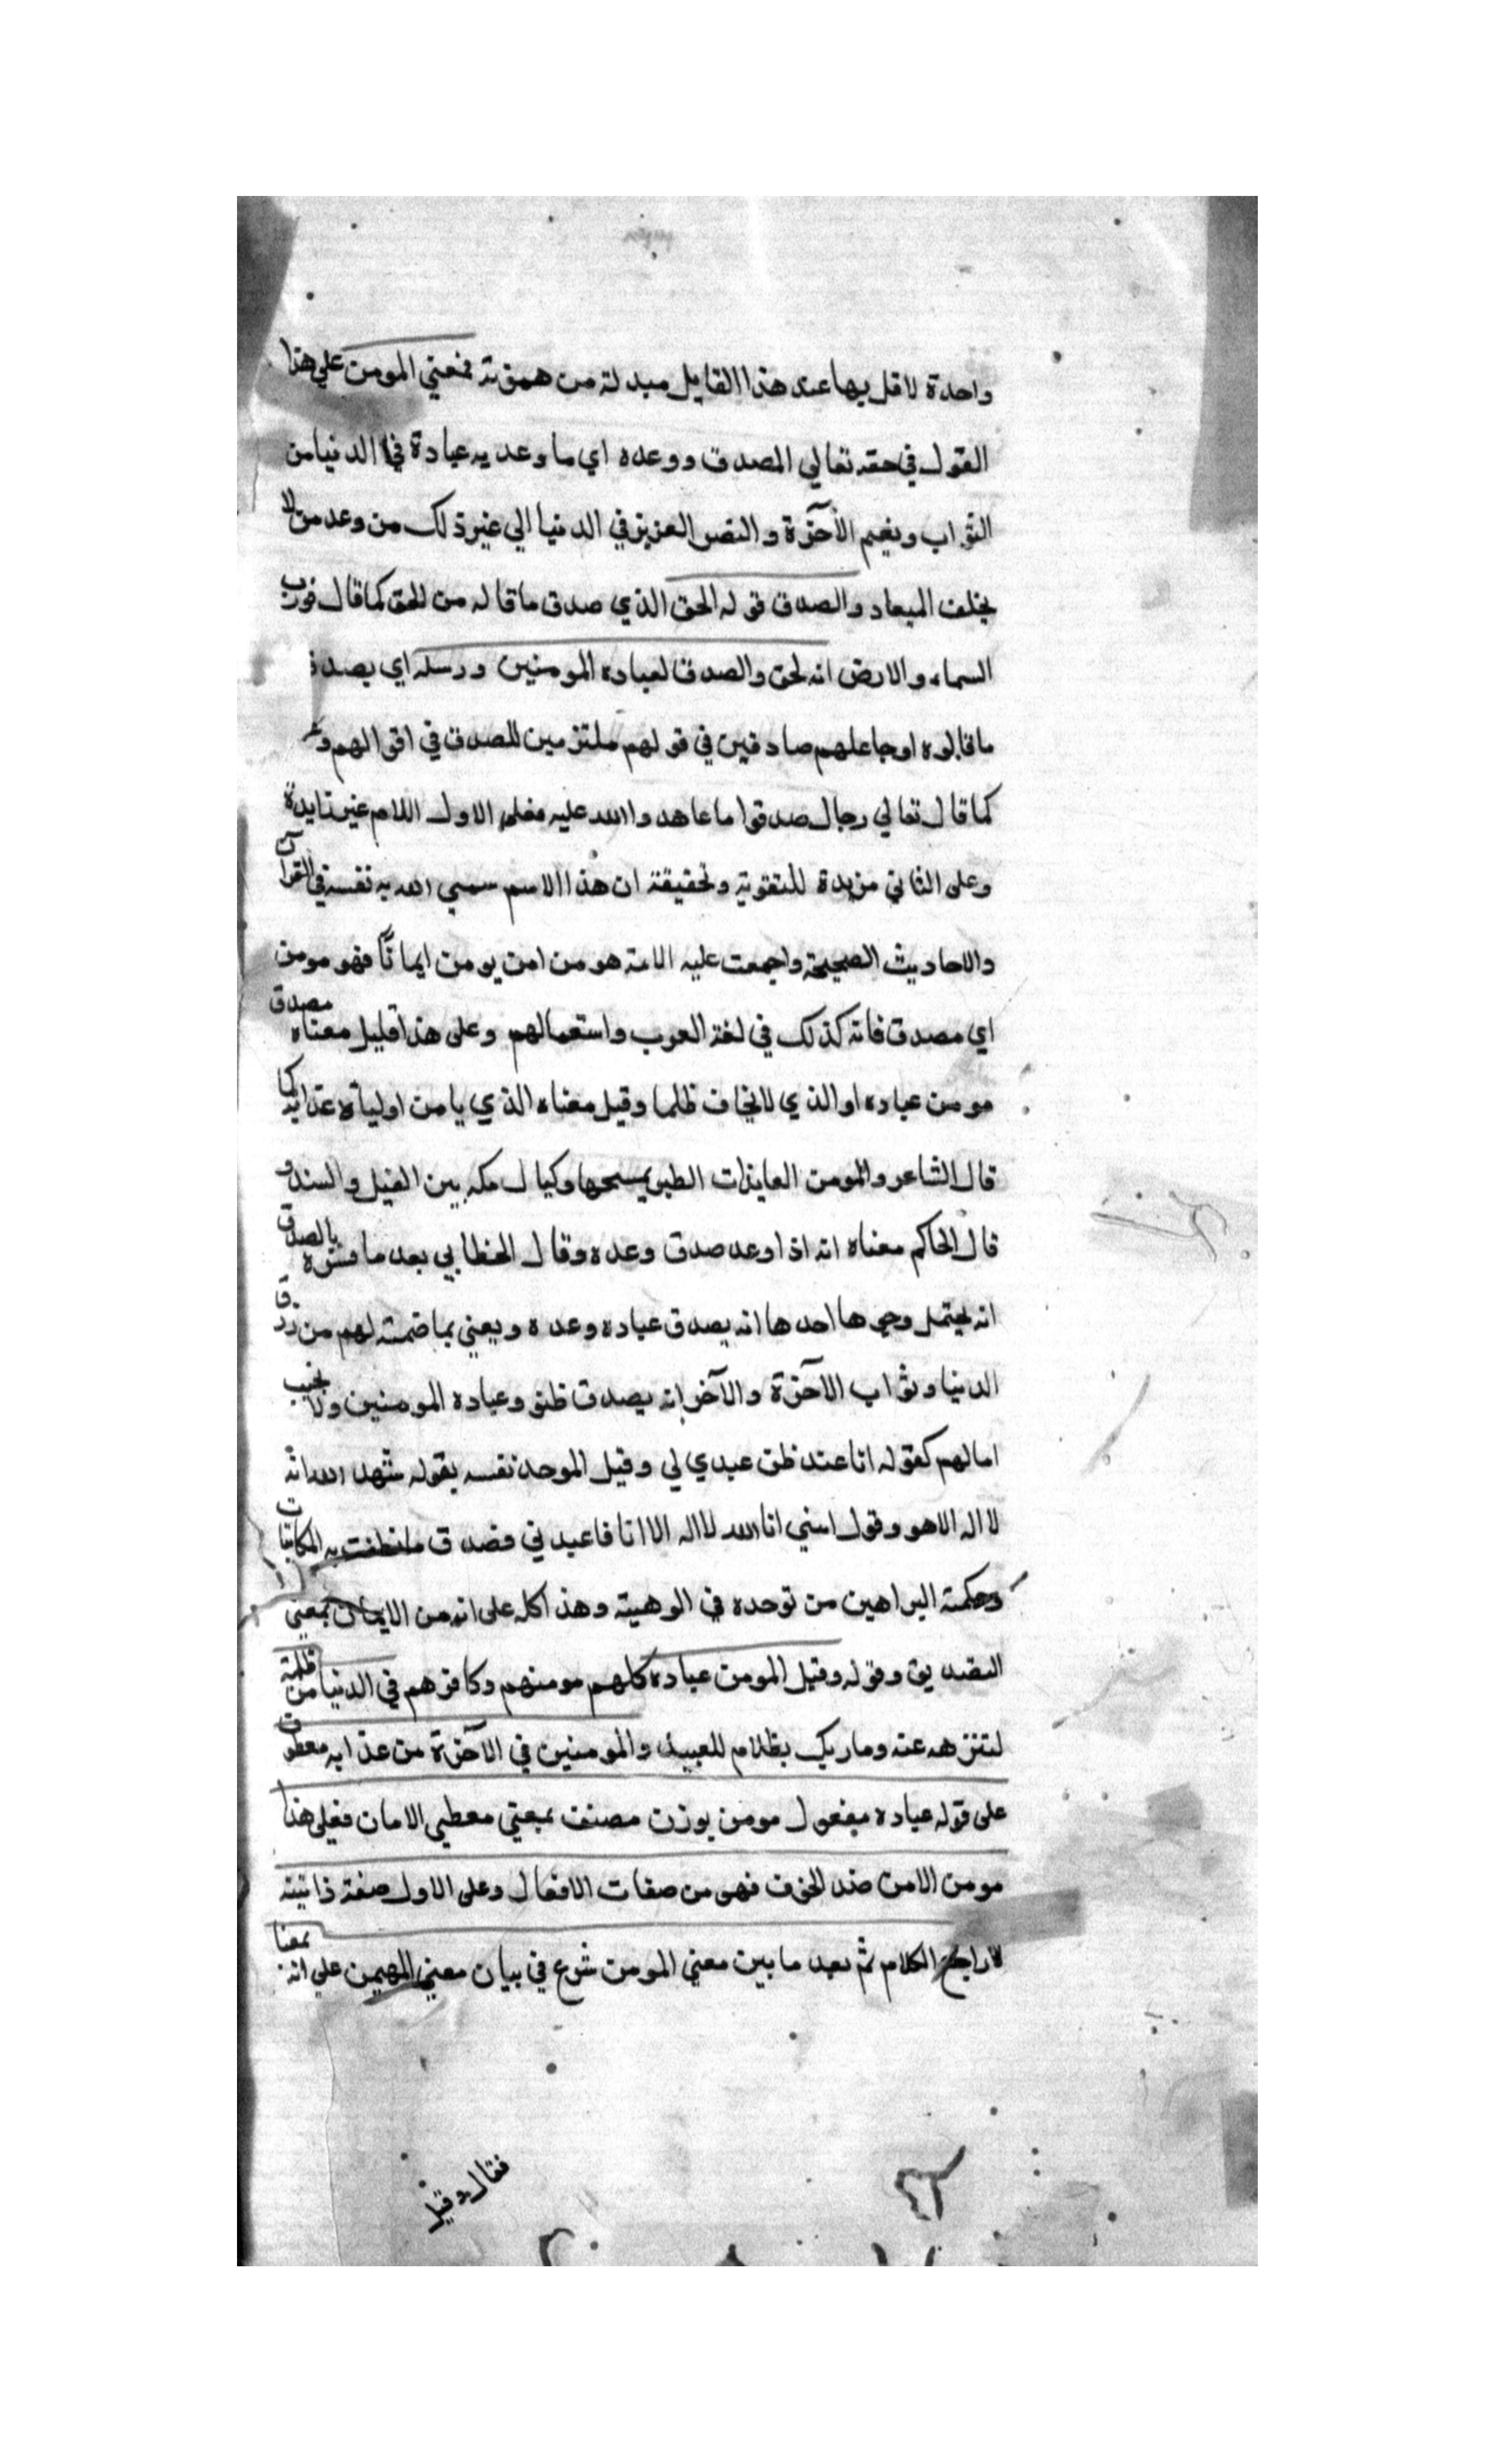 واحدة لاقل يها عند هذا القايل مبدلة من همزة فمعني المومن علي هذا
القول في حقه تعالي المصدق ووعده اي ما وعد به عباده في الدنيا من
الثواب ونعيم الآخرة والنصر العزيز في الدنيا الي غير ذلك من وعد من لا
يخلف الميعاد والصدق قوله الحق الذي صدق ما قاله من الحق كما قال فورب
السماء والارض انه لحق والصدق لعباده المومنين ورسله اي يصدق
ما قالوه او جاعلهم صادقين في قولهم ملتزمين للصدق في اقوالهم
كما قال تعالي رجال صدقوا ما عاهدوا الله عليه فعلي الاول اللام غير زايدة
وعلى الثاني مزيدة للتقوية وتحقيقة ان هذا الاسم سمي الله به نفسه في القرآن
والاحاديث الصحيحة واجمعت عليه الامة هو من امن يومن ايمانًا فهو مومن
اي مصدق فانه كذلك في لغة العرب واستعمالهم وعلى هذا قليل معناه مصدق
مومن عباده او الذي لا يخاف ظلما وقيل معناه الذي يامن اولياؤه عذابه كما
قال الشاعر والمومن العايذات الطير يمسحها وكبال مكه بين الفيل والسند و
قال الحاكم معناه انه اذا وعد صدق وعده وقال الخطابي بعد ما فسره بالصدق
انه يحتمل وجوها احدها انه يصدق عباده وعده ويعني بما ضمنه لهم من رزق
الدنيا وثواب الآخرة والآخر انه يصدق ظنو وعباده المومنين ولا يخيب
امالهم كقوله انا عند ظن عبدي لي وقيل الموحد نفسه بقوله شهد الله انه
لا اله الا هو وقول انني انا الله لا اله الا انا فاعبدني فصدق ما نطقت به المكاتبات
وحكمته البراهين من توحده في الوهيته وهذا كله على انه من الايمان بمعني
التصديق وقوله وقيل المومن عباده كلهم مومنهم وكافرهم في الدنيا من ظلمة
لتنزهه عنه وما ربك بظلام للعبيد والمومنين في الآخرة من عذابه معطوف
على قوله عباده مفعول مومن بوزن مصنف بمعني معطي الامان فعلي هذا
مومن الامن ضد الخوف فهو من صفات الافعال وعلى الاول صفة ذاتيته
لا راجع الكلام ثم بعد ما بين معني المومن شرع في بيان معني المهيمن علي انه بمعنا
فقال وقيل